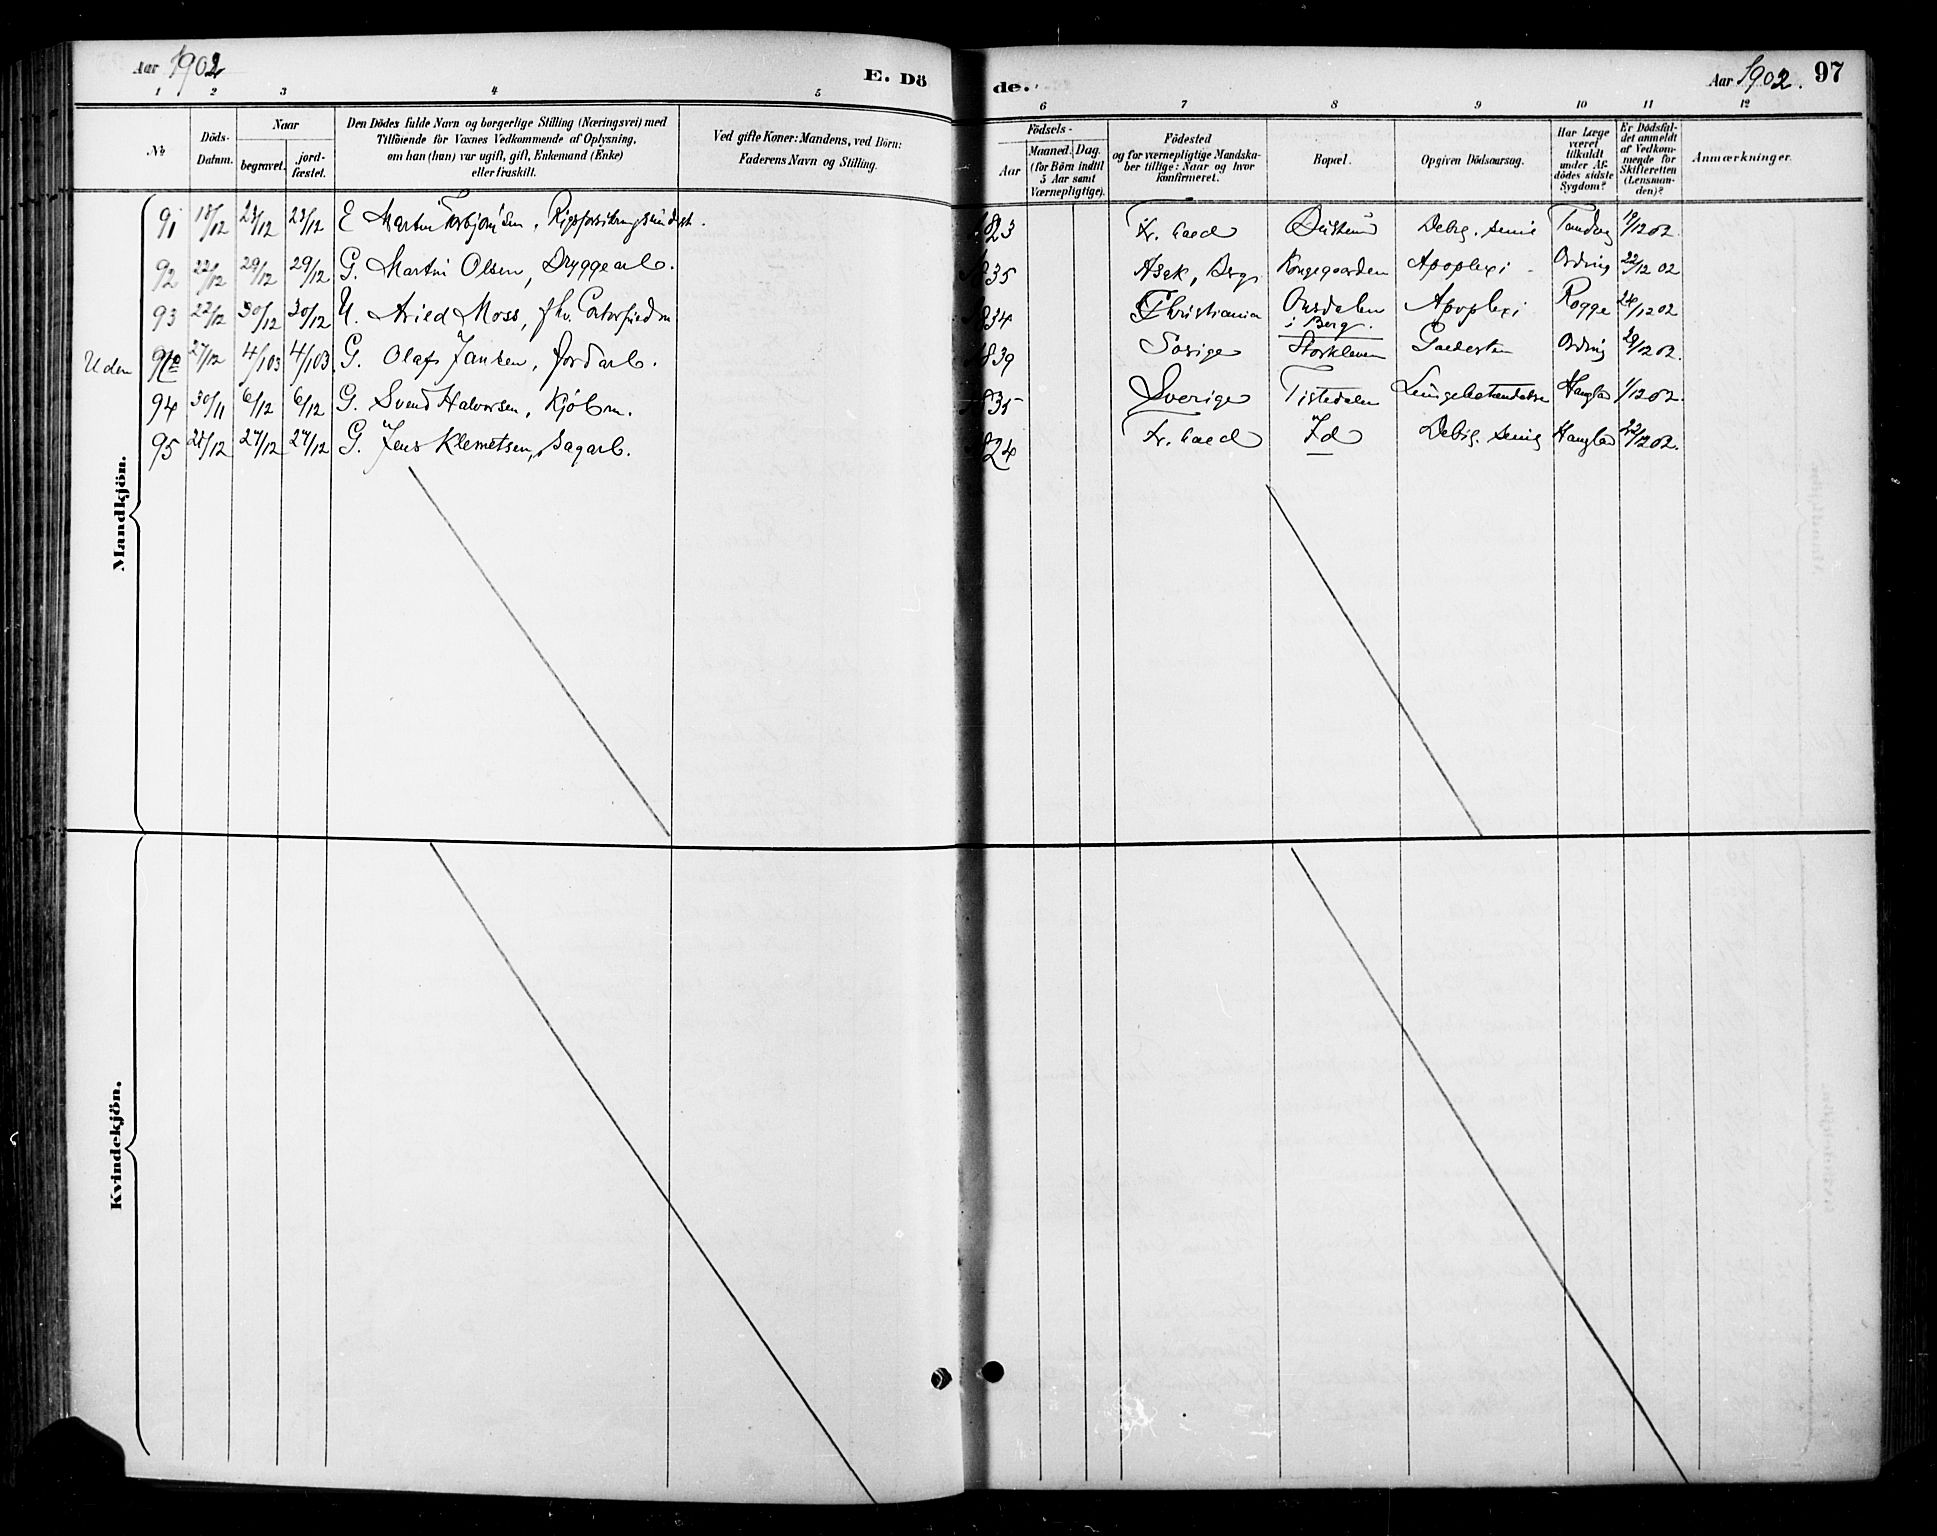 Aar 1902
E. Dö
de.
Aar 1902. 97
1 2 3 4 5 6 7 8 9 10 11 12
No
Döds-Datum.
Naar
begravet.
jord-fæstet.
Den Dödes fulde Navn og borgerlige Stilling (Næringsvei) med
Tilföiende för Voxnes Vedkommende af Oplysning,
om han (hun) var ugift, gift, Enkemand (Enke)
eller fraskilt.
Ved gifte Koner: Mandens, ved Börn:
Faderens Navn og Stilling.
Födsels-
Aar
Maaned. Dag.
(for Börn indtil
5 Aar samt
Værnepligtige).
Födested
og for værnepligtige Mandska-
ber tillige: Naar og hvor
konfirmeret.
Bopæl.
Opgiven Dödsaarsag.
Har Læge
været
tilkaldt
under Af-
dödes sidste
Sygdom?
Er Dödsfal-
det anmeldt
af Vedkom-
mende for
Skifteretten
(Lensman-
den)?
Anmærkninger.
91 18/12 23/12 23/12 E Martin Torbjørnsen, 823 Fr. hald Debig. senil 19/12 02.
92 22/12 29/12 29/12 G. Martin Olsen, Bryggearb. 835 Asak, Berg Kongegaarden Apoplexi Ording 22/12 02
93 22/12 30/12 30/12 U. Moss, fhv. 834 Christiania i Berg. Apoplexi Rogge 24/12 02
Uden 27/12 4/1 03 4/1 03 G. Olaf Jansen, Jordarb. 839 Storkleven Ording 29/12 02.
94 30/11 6/12 6/12 G. Svend Halvorsen, Kjøbm. 835 Sverige Tistedalen Lungebetændelse 1/12 02.
95 27/12 27/12 G. Jens Klemetsen, Sagarb. 824 Fr. hald Id Debig. senil 22/12 02.
Mandkjön.
Kvindekjön.